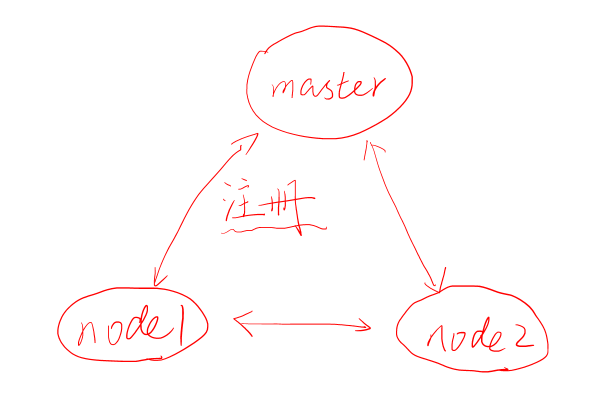 master
注册
node1
node2